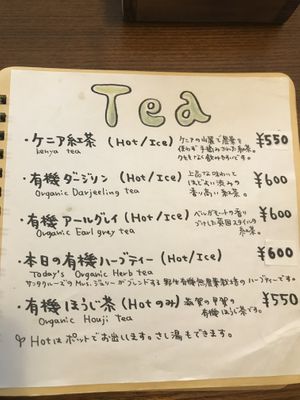 Tea
・ケニア紅茶 (Hot/Ice) ケニアの山麓で農薬を ¥550
kenya tea 使わず手摘みされた紅茶。
クセもなく飲みやすいです。
・有機 ダージリン (Hot/Ice) 上品な味わいと ¥600
Organic Darjeeling tea ほどよい渋みの
香り高い紅茶。
・有機 アールグレイ (Hot/Ice) ベルガモットの香り ¥600
Organic Earl grey tea づけした英国スタイルの
紅茶。
・本日の有機ハーブティー (Hot/Ice) ¥600
Today's Organic Herb tea
サンタクルーズの Mrs.ジュリーがブレンドする野生有機無農薬栽培のハーブティーです。
・有機 ほうじ茶 (Hotのみ) 滋賀の甲賀の ¥550
Organic Houji tea 有機ほうじ茶です。
Hotはポットでお出しします。さし湯もできます。